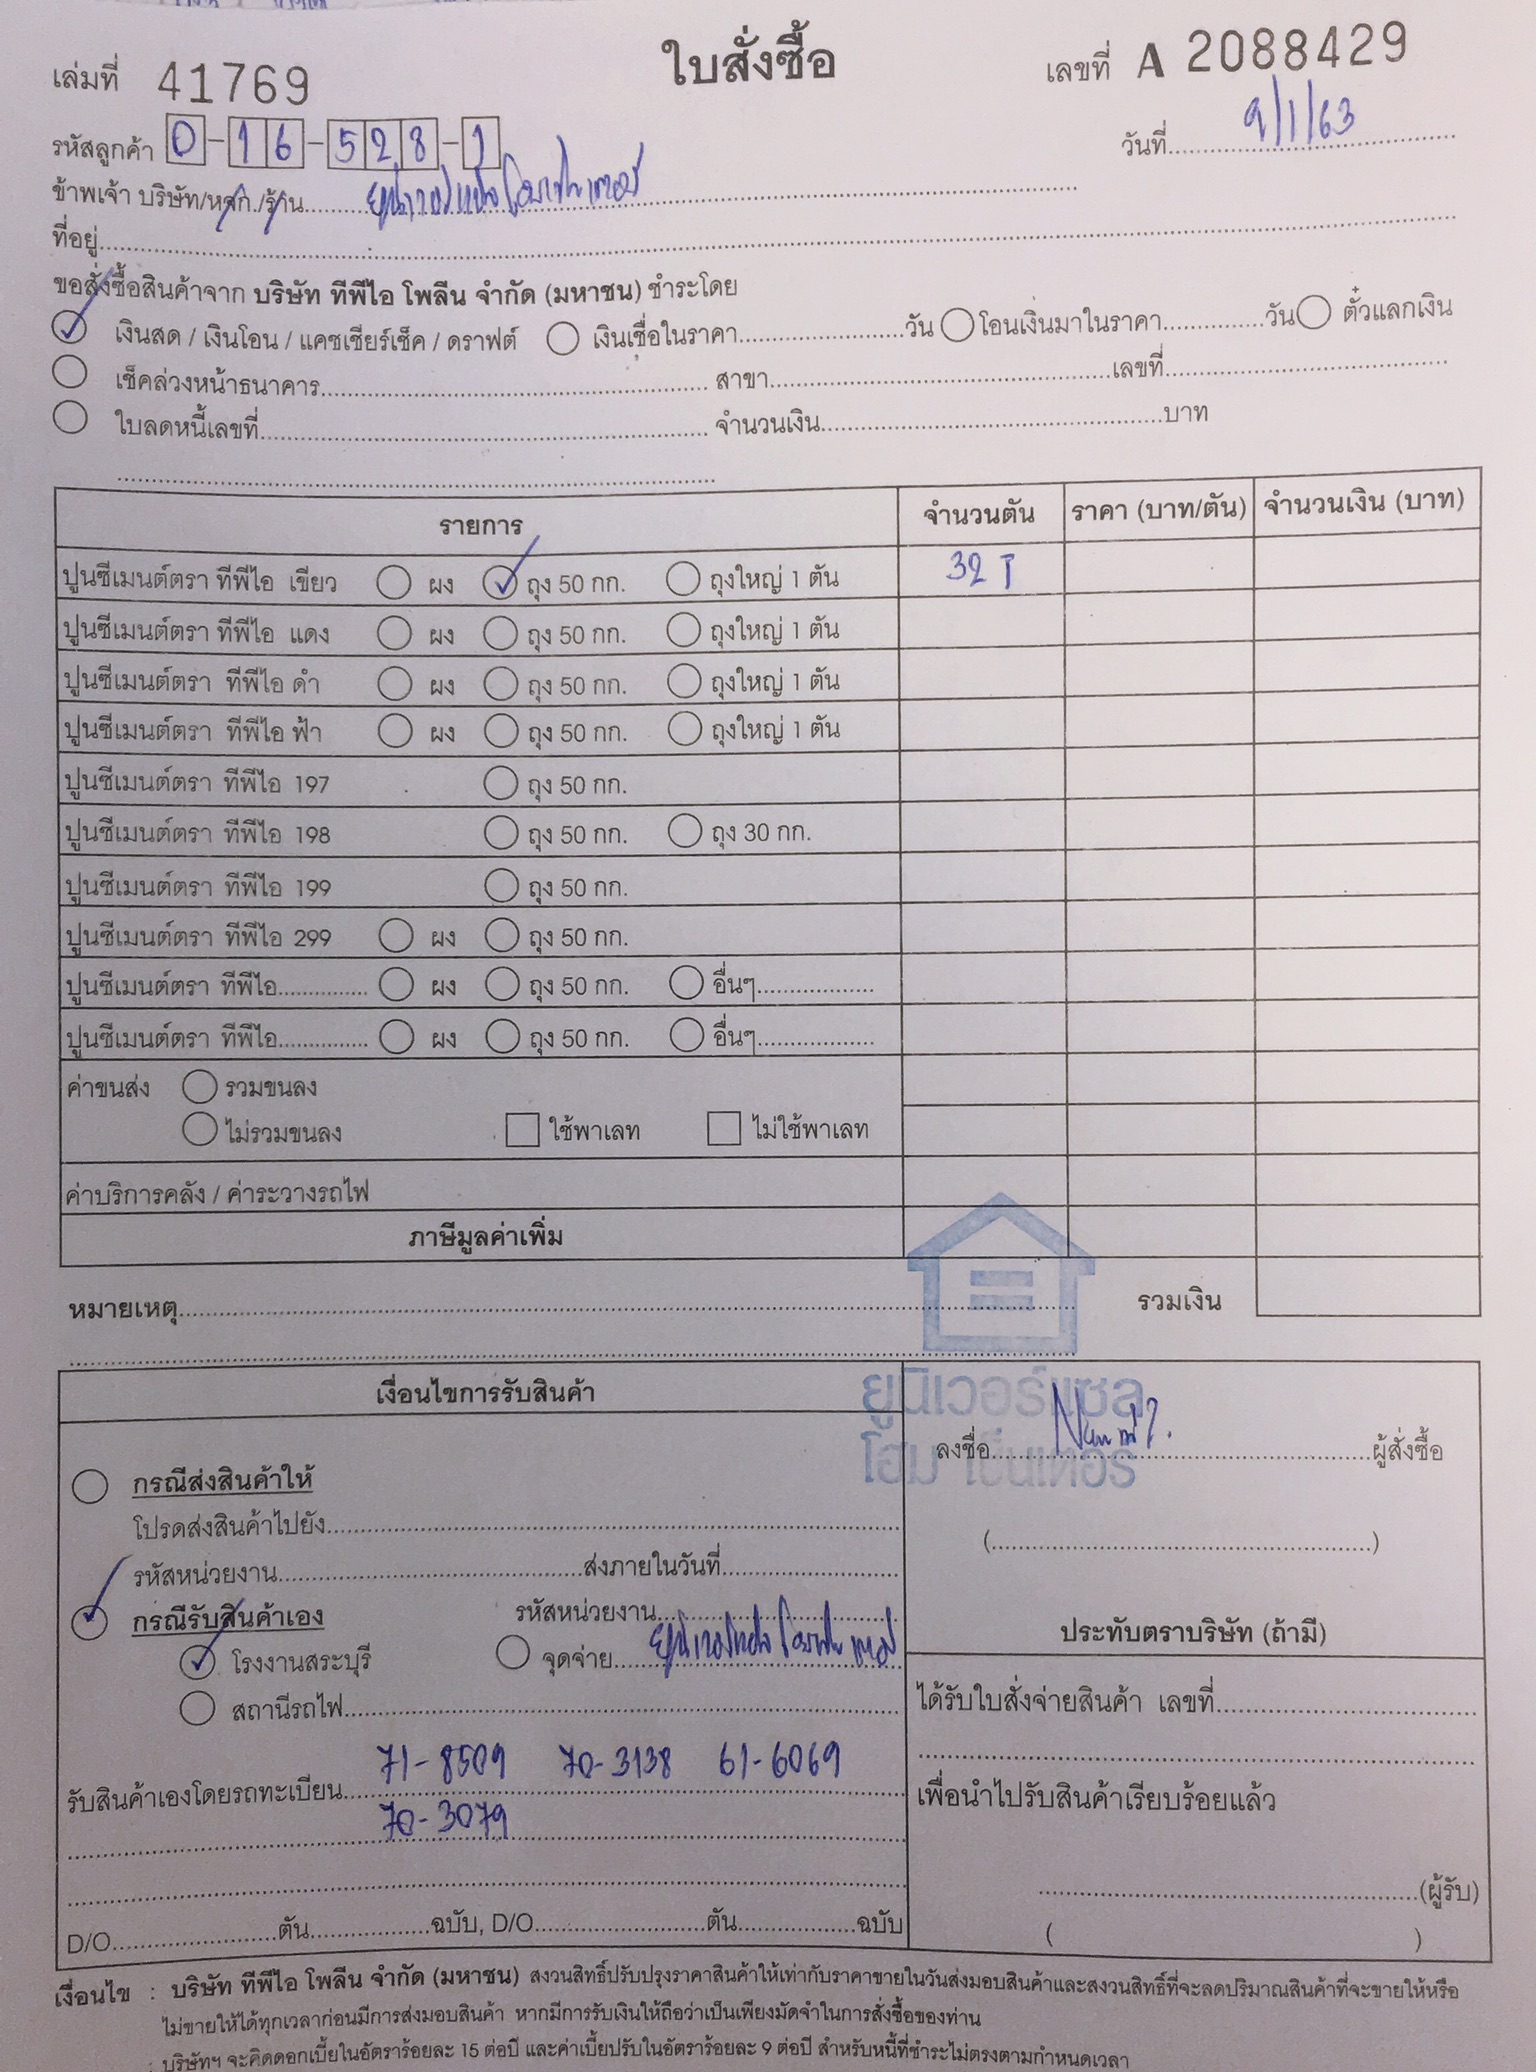 ใบสั่งซื้อ
เล่มที่ 41769
เลขที่ A 2088429
รหัสลูกค้า 0-16-528-1
วันที่ 9/1/63
ข้าพเจ้า บริษัท/หจก./ร้าน ยูนิเวอร์แซล โฮมเซ็นเตอร์
ที่อยู่
ขอสั่งซื้อสินค้าจาก บริษัท ทีพีไอ โพลีน จำกัด (มหาชน) ชำระโดย
เงินสด / เงินโอน / แคชเชียร์เช็ค / ดราฟต์ เงินเชื่อในราคา วัน โอนเงินมาในราคา วัน ตั๋วแลกเงิน
เช็คล่วงหน้าธนาคาร สาขา เลขที่
ใบลดหนี้เลขที่ จำนวนเงิน บาท
รายการ จำนวนตัน ราคา (บาท/ตัน) จำนวนเงิน (บาท)
ปูนซีเมนต์ตรา ทีพีไอ เขียว ผง ถุง 50 กก. ถุงใหญ่ 1 ตัน 32 T
ปูนซีเมนต์ตรา ทีพีไอ แดง ผง ถุง 50 กก. ถุงใหญ่ 1 ตัน
ปูนซีเมนต์ตรา ทีพีไอ ดำ ผง ถุง 50 กก. ถุงใหญ่ 1 ตัน
ปูนซีเมนต์ตรา ทีพีไอ ฟ้า ผง ถุง 50 กก. ถุงใหญ่ 1 ตัน
ปูนซีเมนต์ตรา ทีพีไอ 197 ถุง 50 กก.
ปูนซีเมนต์ตรา ทีพีไอ 198 ถุง 50 กก. ถุง 30 กก.
ปูนซีเมนต์ตรา ทีพีไอ 199 ถุง 50 กก.
ปูนซีเมนต์ตรา ทีพีไอ 299 ผง ถุง 50 กก.
ปูนซีเมนต์ตรา ทีพีไอ ผง ถุง 50 กก. อื่นๆ
ปูนซีเมนต์ตรา ทีพีไอ ผง ถุง 50 กก. อื่นๆ
ค่าขนส่ง รวมขนลง
ไม่รวมขนลง ใช้พาเลท ไม่ใช้พาเลท
ค่าบริการคลัง / ค่าระวางรถไฟ
ภาษีมูลค่าเพิ่ม
หมายเหตุ รวมเงิน
เงื่อนไขการรับสินค้า
ยูนิเวอร์แซล
โฮม เซ็นเตอร์
ลงชื่อ ผู้สั่งซื้อ
กรณีส่งสินค้าให้
โปรดส่งสินค้าไปยัง
รหัสหน่วยงาน ส่งภายในวันที่
กรณีรับสินค้าเอง รหัสหน่วยงาน
ประทับตราบริษัท (ถ้ามี)
โรงงานสระบุรี จุดจ่าย ยูนิเวอร์แซล โฮมเซ็นเตอร์
สถานีรถไฟ
ได้รับใบสั่งจ่ายสินค้า เลขที่
71-8509 70-3138 61-6069
รับสินค้าเองโดยรถทะเบียน
เพื่อนำไปรับสินค้าเรียบร้อยแล้ว
70-3079
(ผู้รับ)
D/O ตัน ฉบับ, D/O ตัน ฉบับ
เงื่อนไข : บริษัท ทีพีไอ โพลีน จำกัด (มหาชน) สงวนสิทธิ์ปรับปรุงราคาสินค้าให้เท่ากับราคาขายในวันส่งมอบสินค้าและสงวนสิทธิ์ที่จะลดปริมาณสินค้าที่จะขายให้หรือ
ไม่ขายให้ได้ทุกเวลาก่อนมีการส่งมอบสินค้า หากมีการรับเงินให้ถือว่าเป็นเพียงมัดจำในการสั่งซื้อของท่าน
: บริษัทฯ จะคิดดอกเบี้ยในอัตราร้อยละ 15 ต่อปี และค่าเบี้ยปรับในอัตราร้อยละ 9 ต่อปี สำหรับหนี้ที่ชำระไม่ตรงตามกำหนดเวลา